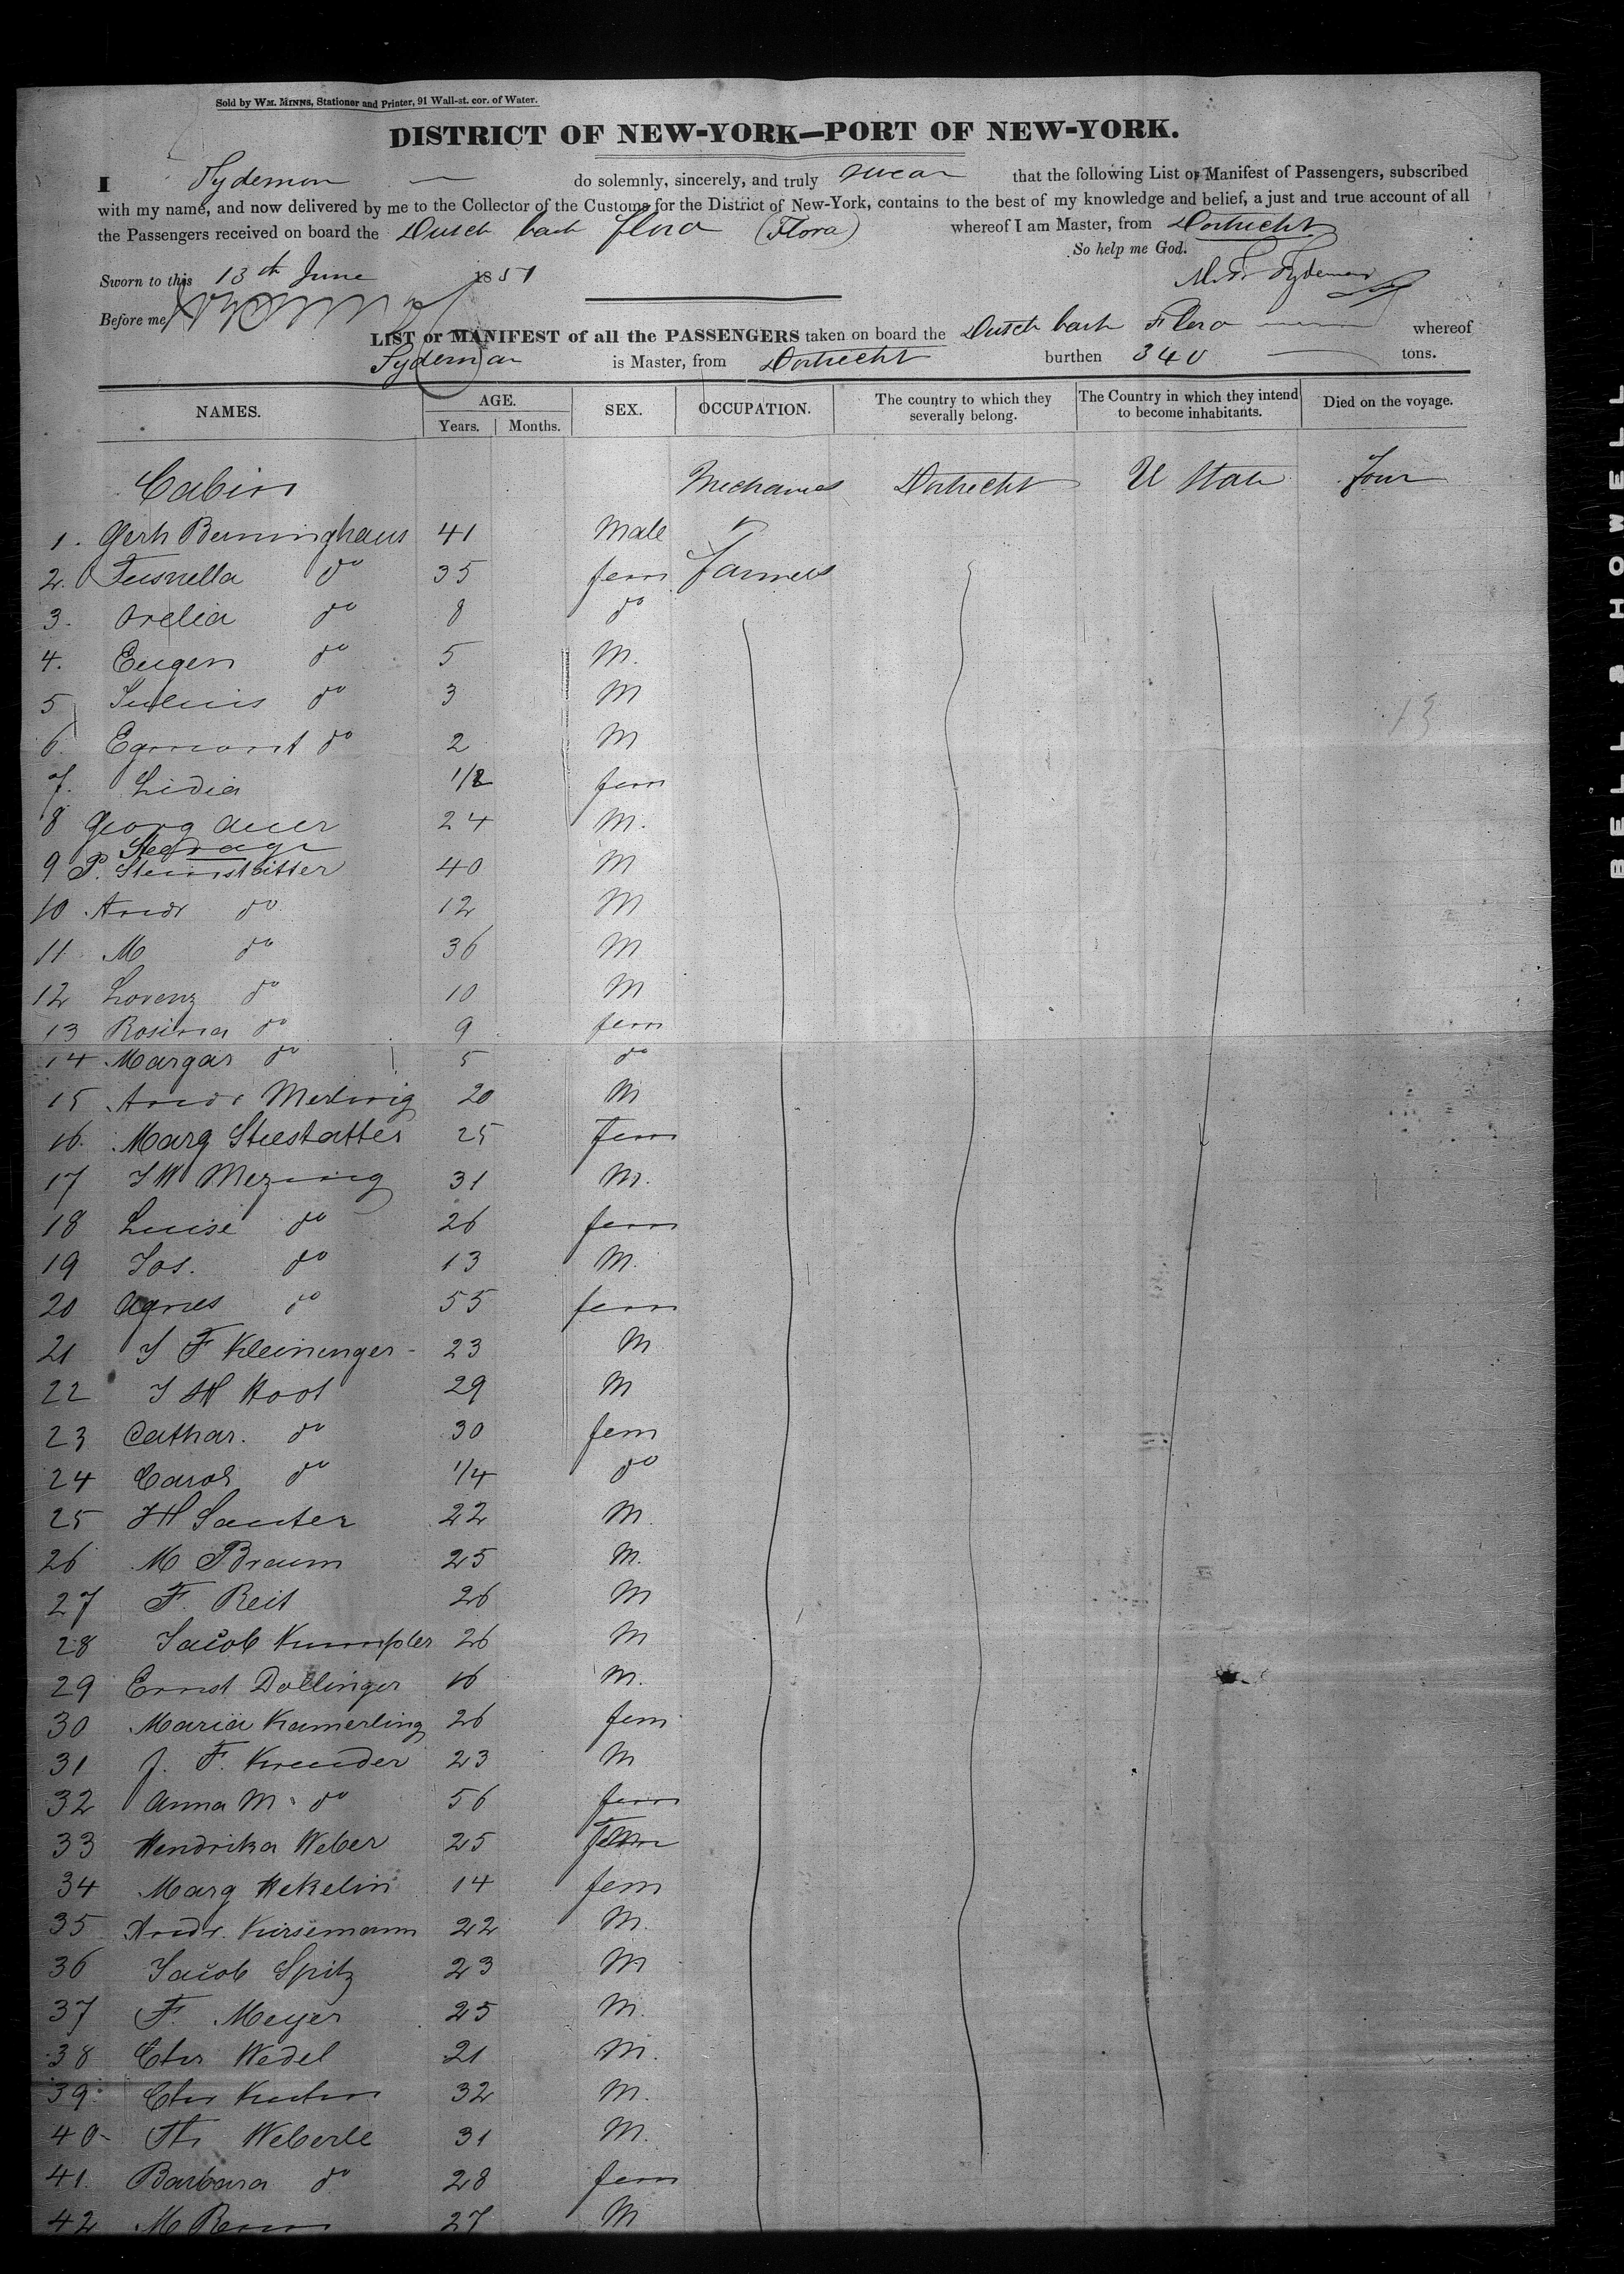 Sold by WM. MINNS, Stationer and Printer, 91 Wall-st. cor. of Water.
DISTRICT OF NEW-YORK—PORT OF NEW-YORK.
I Tydeman do solemnly, sincerely, and truly swear that the following List or Manifest of Passengers, subscribed
with my name, and now delivered by me to the Collector of the Customs for the District of New-York, contains to the best of my knowledge and belief, a just and true account of all
the Passengers received on board the Dutch bark Flora (Flora) whereof I am Master, from Dortrecht
So help me God.
Sworn to this 13th June 1851
Tydeman
Before me
LIST or MANIFEST of all the PASSENGERS taken on board the Dutch bark Flora whereof
Tydeman is Master, from Dortrecht burthen 340 tons.
NAMES. AGE. Years. Months. SEX. OCCUPATION. The country to which they severally belong. The Country in which they intend to become inhabitants. Died on the voyage.
Cabin Mechanics Dortrecht U State Four
1. Gerh Berninghaus 41 Male
2. Tusnella do 35 fem Farmers
3. Orelia do 8 do
4. Eugen do 5 M.
5 Julius do 3 M
13
6. Egmont do 2 M
7. Lidia 1/2 fem
8 Georg Auer 24 M.
Steerage
9 P. 40 M
10 Andr do 12 M
11. M do 36 M
12 Lorenz do 10 M
13 Rosina do 9 fem
14 Margar do 5 do
15 Andr 20 M
16. Marg 25 Fem
17 J W 31 M.
18 Luise do 26 fem
19 Jos. do 13 M.
20 Agnes do 55 fem
21 J F Kleininger 23 M
22 J H Hoot 29 M
23 Cathar. do 30 fem
24 Carol do 1/4 do
25 J H Sauter 22 M.
26 M Braum 25 M.
27 F. Reit 26 M
28 Jacob Kumpler 26 M
29 Ernst Dollinger 16 M.
30 Maria Kamerling 26 fem
31 J. F. Kreuder 23 M
32 Anna M. do 56 fem
33 Hendrika Weber 25 fem
34 Marg Hekelin 14 fem
35 Andr. Kirsemann 22 M.
36 Jacob Spitz 23 M
37 F. Meyer 25 M.
38 Chr Wedel 21 M.
39. Chr Kuhn 32 M.
40- Weberle 31 M.
41. Barbara do 28 fem
42 M 27 M
BELL & HOWELL